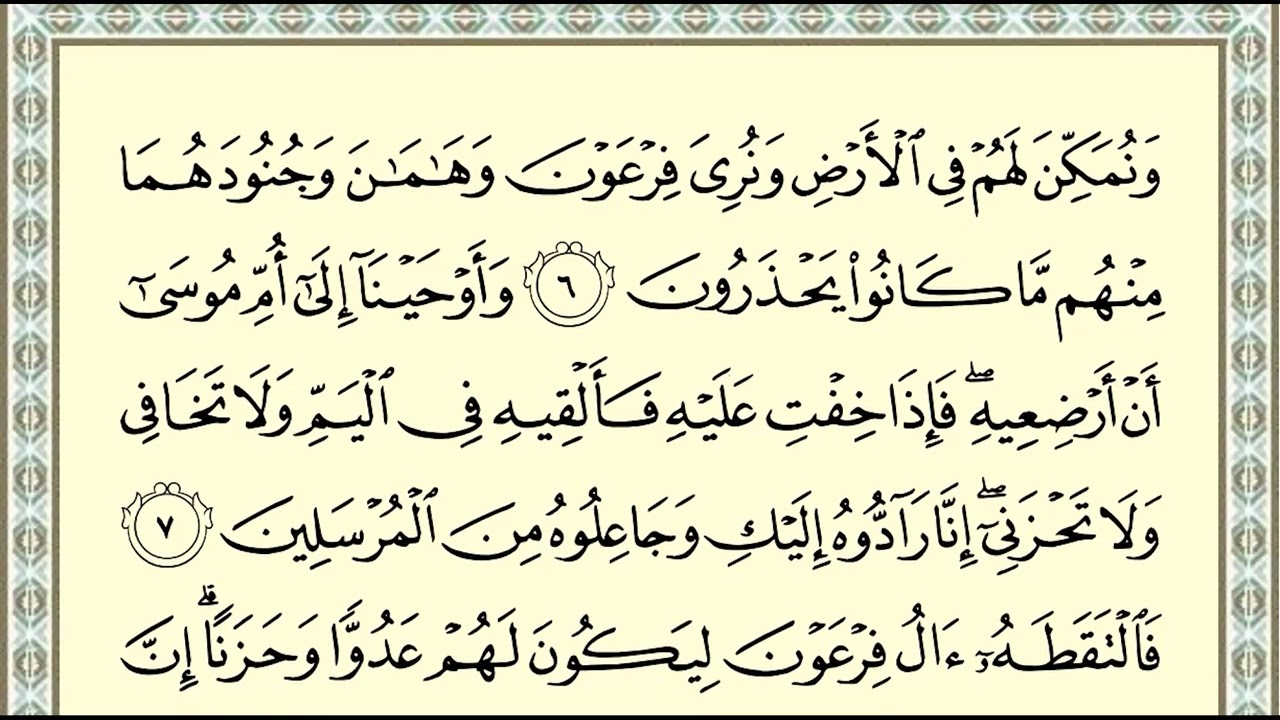 وَنُمَكِّنَ لَهُمْ فِى ٱلْأَرْضِ وَنُرِىَ فِرْعَوْنَ وَهَـٰمَـٰنَ وَجُنُودَهُمَا
مِنْهُم مَّا كَانُوا۟ يَحْذَرُونَ ٦ وَأَوْحَيْنَآ إِلَىٰٓ أُمِّ مُوسَىٰٓ
أَنْ أَرْضِعِيهِ ۖ فَإِذَا خِفْتِ عَلَيْهِ فَأَلْقِيهِ فِى ٱلْيَمِّ وَلَا تَخَافِى
وَلَا تَحْزَنِىٓ ۖ إِنَّا رَآدُّوهُ إِلَيْكِ وَجَاعِلُوهُ مِنَ ٱلْمُرْسَلِينَ ٧
فَٱلْتَقَطَهُۥٓ ءَالُ فِرْعَوْنَ لِيَكُونَ لَهُمْ عَدُوًّا وَحَزَنًا ۗ إِنَّ